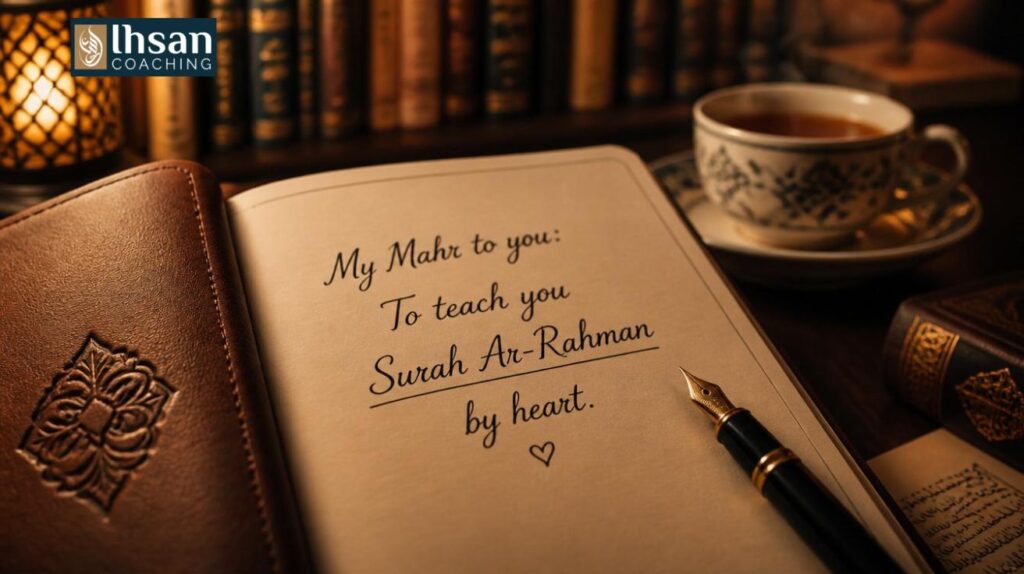 Ihsan
COACHING
My Mahr to you:
To teach you
Surah Ar-Rahman
by heart.